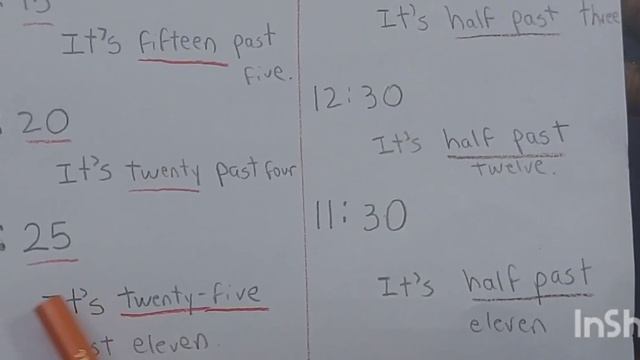 : 15
It's fifteen past
five.
: 20
It's twenty past four
: 25
It's twenty-five
eleven.
It's half past three
12:30
It's half past
twelve.
11:30
It's half past
eleven
InSh